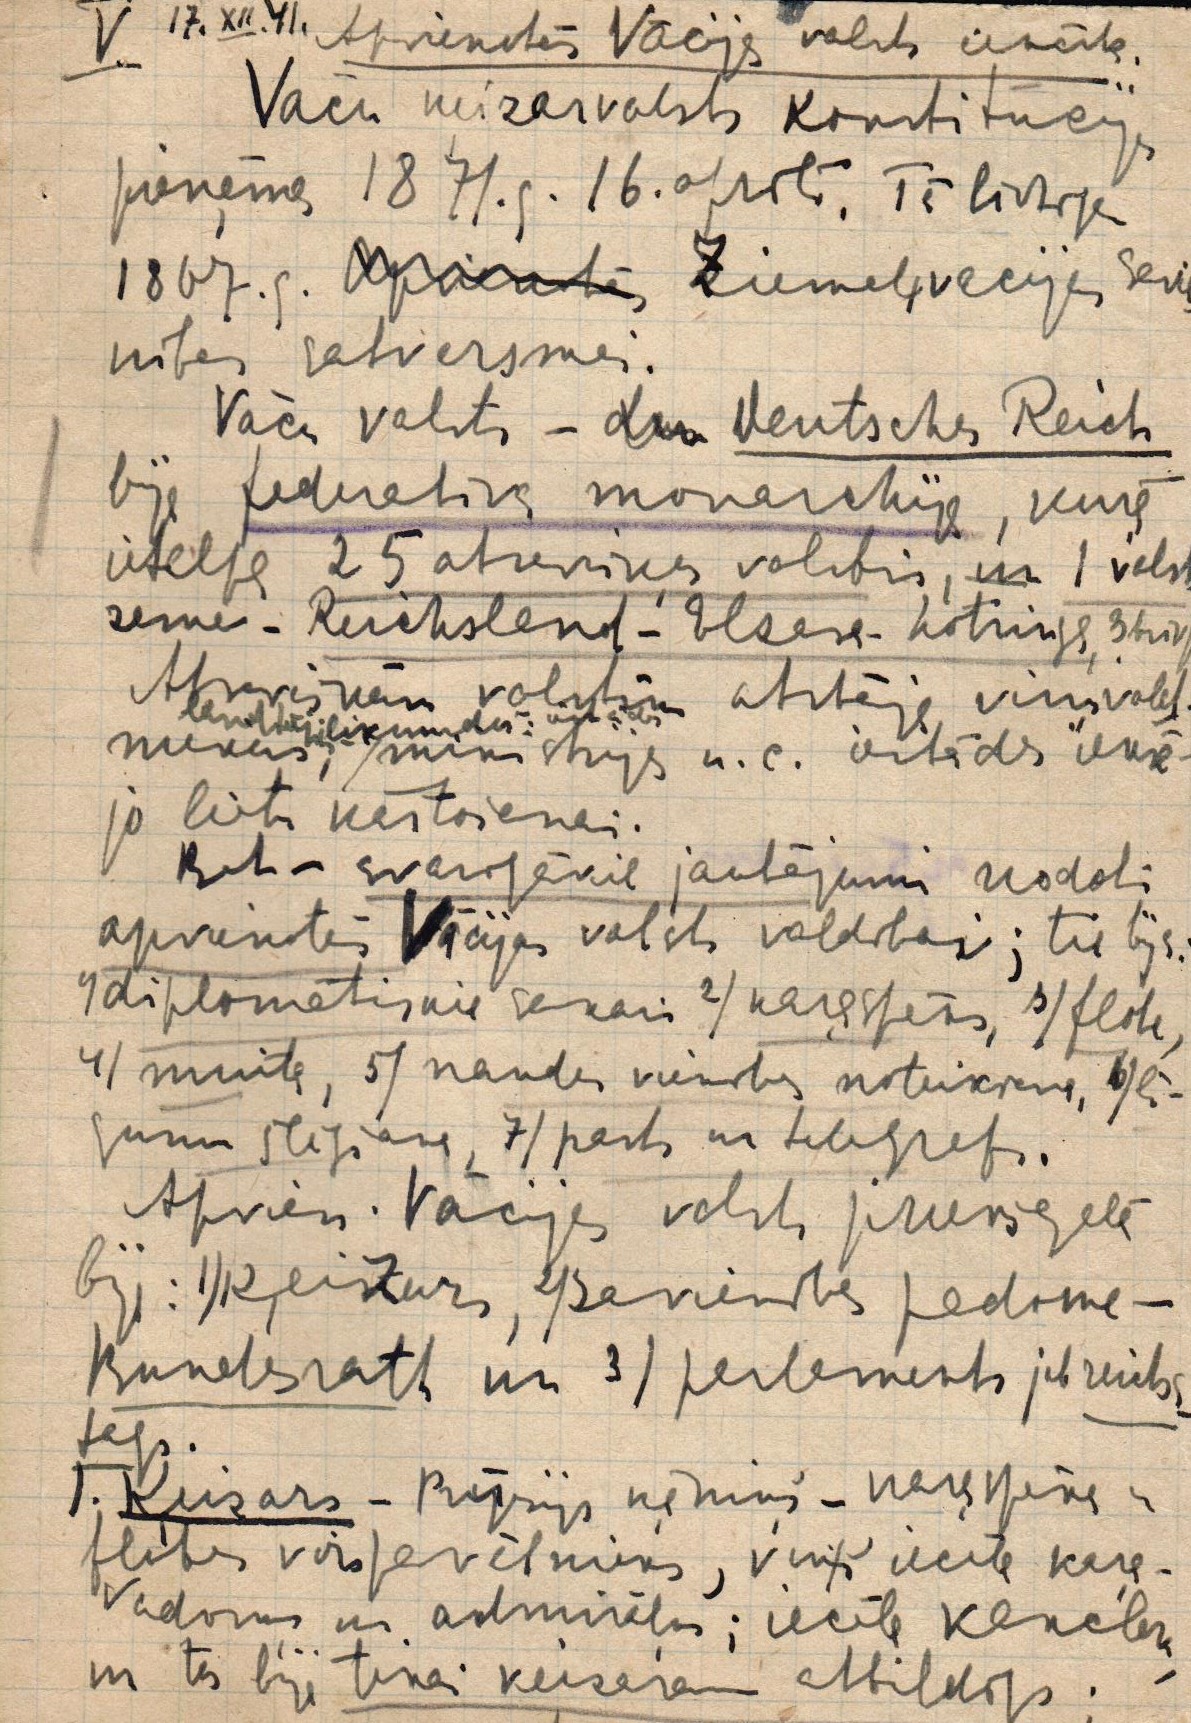 V. 17.XII.41. Apvienotās Vācijas valsts iekārta.
Vācu ķeizarvalsts Konstitūcija
pieņēma 1871.g. 16. aprīlī. Tā līdzīga
1867.g. Apvienotās Ziemeļvācijas Savie
nības satversmei.
Vācu valsts – Deutsches Reich
bija federatīva monarchija, kurā
ietelpa 25 atsevišķas valstis, un 1 valsts
zeme – Reichsland – Elzasa-Lotringa, 3 brīvp
Atsevišķām valstīm atstāja viņu vald-
landtāgi likumdoš. iestādes
niekus, ministrijas u.c. iestādes iekšē-
jo lietu kārtošanai.
Bet – svarīgākie jautājumi nodoti
apvienotās Vācijas valsts valdībai; tie bija:
1/ diplomātiskie sakari 2/ karaspēks, 3/ flote,
4/ muita, 5/ naudas vienības noteikšana, 6/ lī-
gumu slēgšana, 7/ pasts un telegrafs.
Apvien. Vācijas valsts priekšgalā
bij: 1) Ķeizars, 2/ Savienības padome –
Bundesrath un 3/ parlaments jeb reichs-
tags.
1. Ķeizars – Prūsijas ķēniņš – karaspēka u
flotes virspavēlnieks, viņš iecēla kara-
vadoņus un admirāļus; iecēla kancleru,
un tas bija tikai ķeizaram atbildīgs.